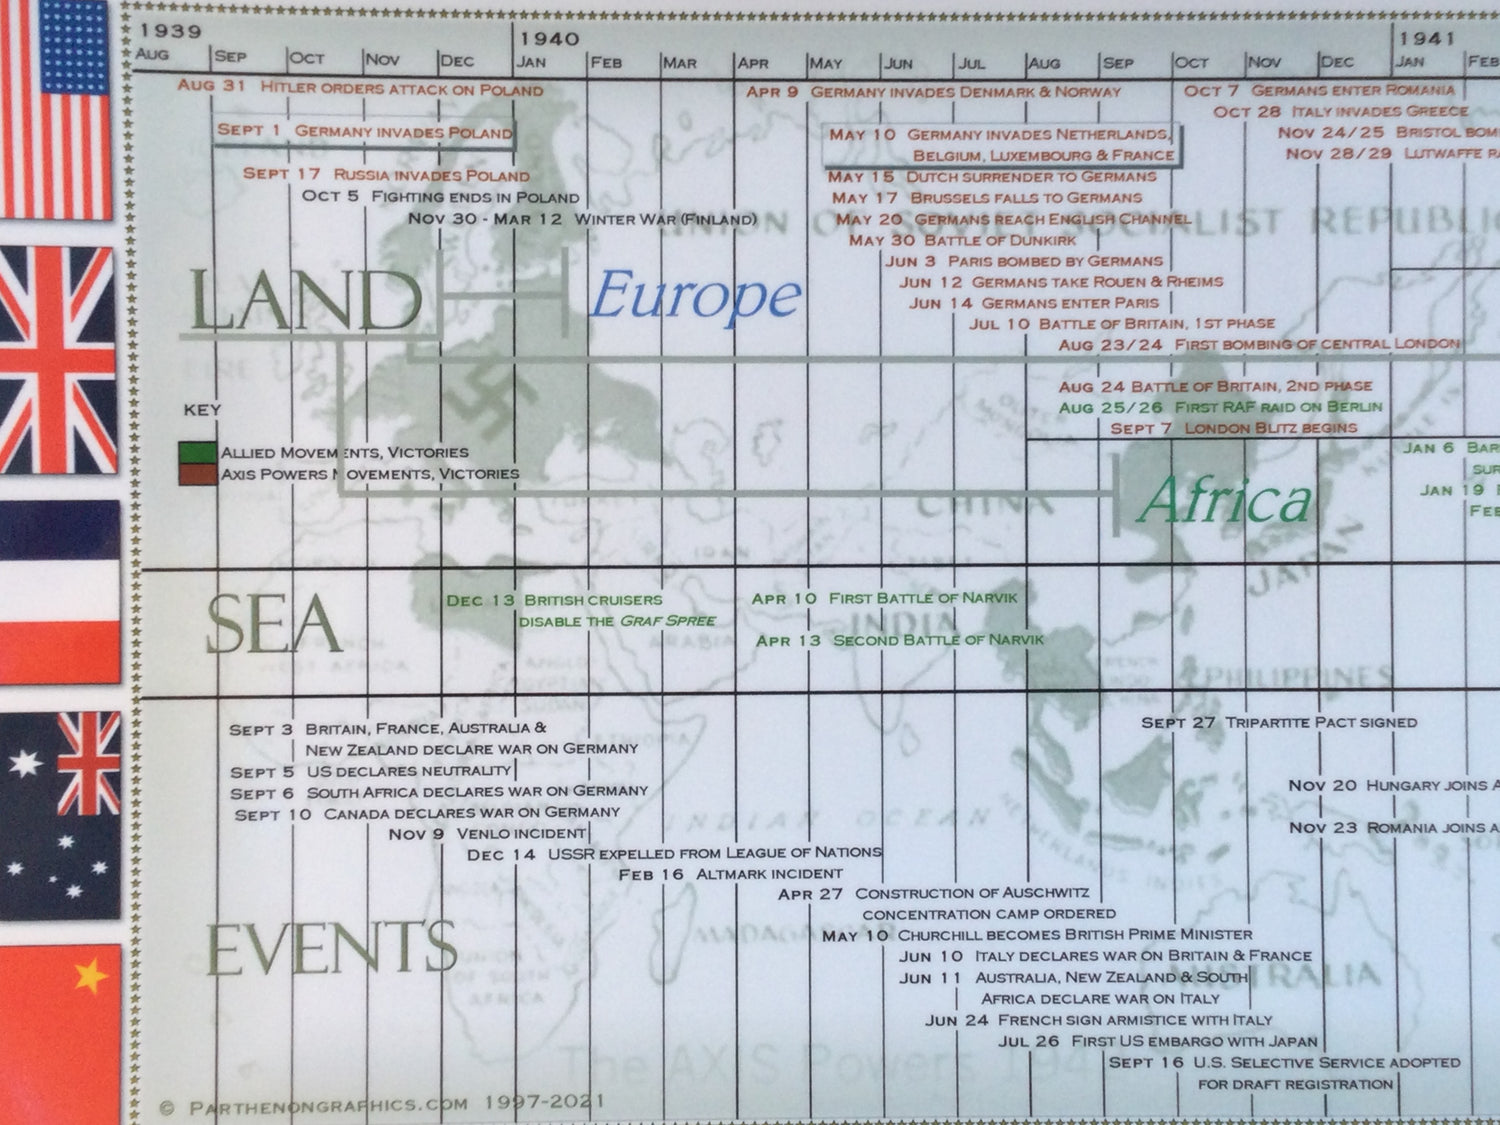 1939
1940
1941
AUG SEP OCT NOV DEC JAN FEB MAR APR MAY JUN JUL AUG SEP OCT NOV DEC JAN FEB
AUG 31 HITLER ORDERS ATTACK ON POLAND
SEPT 1 GERMANY INVADES POLAND
SEPT 17 RUSSIA INVADES POLAND
OCT 5 FIGHTING ENDS IN POLAND
NOV 30 - MAR 12 WINTER WAR (FINLAND)
APR 9 GERMANY INVADES DENMARK & NORWAY
MAY 10 GERMANY INVADES NETHERLANDS,
BELGIUM, LUXEMBOURG & FRANCE
MAY 15 DUTCH SURRENDER TO GERMANS
MAY 17 BRUSSELS FALLS TO GERMANS
MAY 20 GERMANS REACH ENGLISH CHANNEL
MAY 30 BATTLE OF DUNKIRK
JUN 3 PARIS BOMBED BY GERMANS
JUN 12 GERMANS TAKE ROUEN & RHEIMS
JUN 14 GERMANS ENTER PARIS
JUL 10 BATTLE OF BRITAIN, 1ST PHASE
AUG 23/24 FIRST BOMBING OF CENTRAL LONDON
AUG 24 BATTLE OF BRITAIN, 2ND PHASE
AUG 25/26 FIRST RAF RAID ON BERLIN
SEPT 7 LONDON BLITZ BEGINS
OCT 7 GERMANS ENTER ROMANIA
OCT 28 ITALY INVADES GREECE
NOV 24/25 BRISTOL BOM
NOV 28/29 LUTWAFFE RA
UNION OF SOVIET SOCIALIST REPUBLIC
LAND
Europe
KEY
ALLIED MOVEMENTS, VICTORIES
AXIS POWERS MOVEMENTS, VICTORIES
Africa
JAN 6 BAR
SUR
JAN 19
FEB
EIRE
CHINA
IRAN
JAPAN
SEA
DEC 13 BRITISH CRUISERS
DISABLE THE GRAF SPREE
APR 10 FIRST BATTLE OF NARVIK
APR 13 SECOND BATTLE OF NARVIK
INDIA
ARABIA
PHILIPPINES
SEPT 3 BRITAIN, FRANCE, AUSTRALIA &
NEW ZEALAND DECLARE WAR ON GERMANY
SEPT 5 US DECLARES NEUTRALITY
SEPT 6 SOUTH AFRICA DECLARES WAR ON GERMANY
SEPT 10 CANADA DECLARES WAR ON GERMANY
NOV 9 VENLO INCIDENT
DEC 14 USSR EXPELLED FROM LEAGUE OF NATIONS
FEB 16 ALTMARK INCIDENT
APR 27 CONSTRUCTION OF AUSCHWITZ
CONCENTRATION CAMP ORDERED
MAY 10 CHURCHILL BECOMES BRITISH PRIME MINISTER
JUN 10 ITALY DECLARES WAR ON BRITAIN & FRANCE
JUN 11 AUSTRALIA, NEW ZEALAND & SOUTH
AFRICA DECLARE WAR ON ITALY
JUN 24 FRENCH SIGN ARMISTICE WITH ITALY
JUL 26 FIRST US EMBARGO WITH JAPAN
SEPT 16 U.S. SELECTIVE SERVICE ADOPTED
FOR DRAFT REGISTRATION
SEPT 27 TRIPARTITE PACT SIGNED
NOV 20 HUNGARY JOINS A
NOV 23 ROMANIA JOINS A
EVENTS
INDIAN OCEAN
MADAGASCAR
UNION
OF SOUTH
AFRICA
AUSTRALIA
The AXIS Powers 194
© PARTHENONGRAPHICS.COM 1997-2021